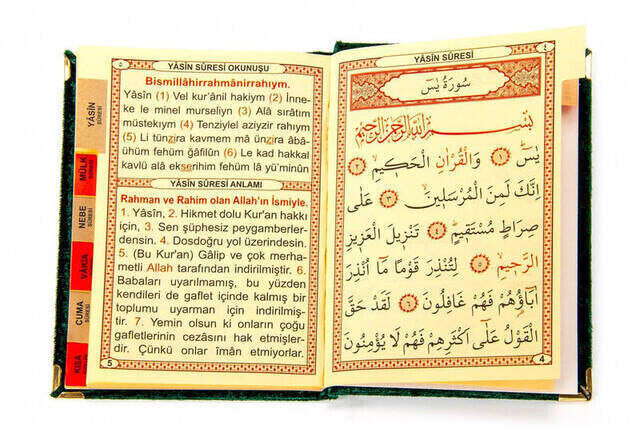 YÂSİN
SÛRESİ
MÜLK
SÛRESİ
NEBE
SÛRESİ
VÂKIA
CUMA
SÛRESİ
KISA
٥
YÂSİN SÛRESİ OKUNUŞU
Bismillâhirrahmânirrahıym.
Yâsîn (1) Vel kur'ânil hakiym (2) İnne-
ke le minel murseliyn (3) Alâ sırâtım
müstekıym (4) Tenziylel aziyzir rahıym
(5) Li tünzira kavmem mâ ünzira âbâ-
ühüm fehüm ğâfilûn (6) Le kad hakkal
kavlü alâ ekserihim fehüm lâ yü'minûn
YÂSİN SÛRESİ ANLAMI
Rahman ve Rahim olan Allah'ın İsmiyle.
1. Yâsîn, 2. Hikmet dolu Kur'an hakkı
için, 3. Sen şüphesiz peygamberler-
densin. 4. Dosdoğru yol üzerindesin.
5. (Bu Kur'an) Gâlip ve çok merha-
metli Allah tarafından indirilmiştir. 6.
Babaları uyarılmamış, bu yüzden
kendileri de gaflet içinde kalmış bir
toplumu uyarman için indirilmiş-
tir. 7. Yemin olsun ki onların çoğu
gafletlerinin cezasını hak etmişler-
dir. Çünkü onlar îmân etmiyorlar.
5
YÂSİN SÛRESİ
٤
سُورَةُ يٰسٓ
بِسْمِ اللّٰهِ الرَّحْمٰنِ الرَّحِيمِ
يٰسٓ ﴿١﴾ وَالْقُرْاٰنِ الْحَكِيمِ ﴿٢﴾
اِنَّكَ لَمِنَ الْمُرْسَلِينَ ﴿٣﴾ عَلٰى
صِرَاطٍ مُسْتَقِيمٍ ﴿٤﴾ تَنْزِيلَ الْعَزِيزِ
الرَّحِيمِ ﴿٥﴾ لِتُنْذِرَ قَوْمًا مَا اُنْذِرَ
اٰبَاؤُهُمْ فَهُمْ غَافِلُونَ ﴿٦﴾ لَقَدْ حَقَّ
الْقَوْلُ عَلٰى اَكْثَرِهِمْ فَهُمْ لَا يُؤْمِنُونَ
4